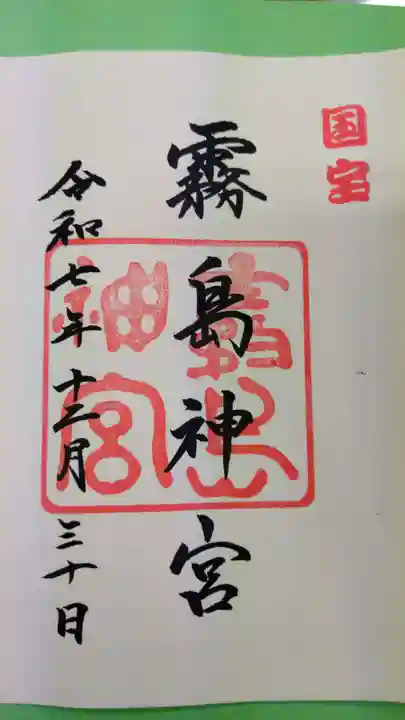 国宝
霧島神宮
霧島神宮
令和七年十二月三十日